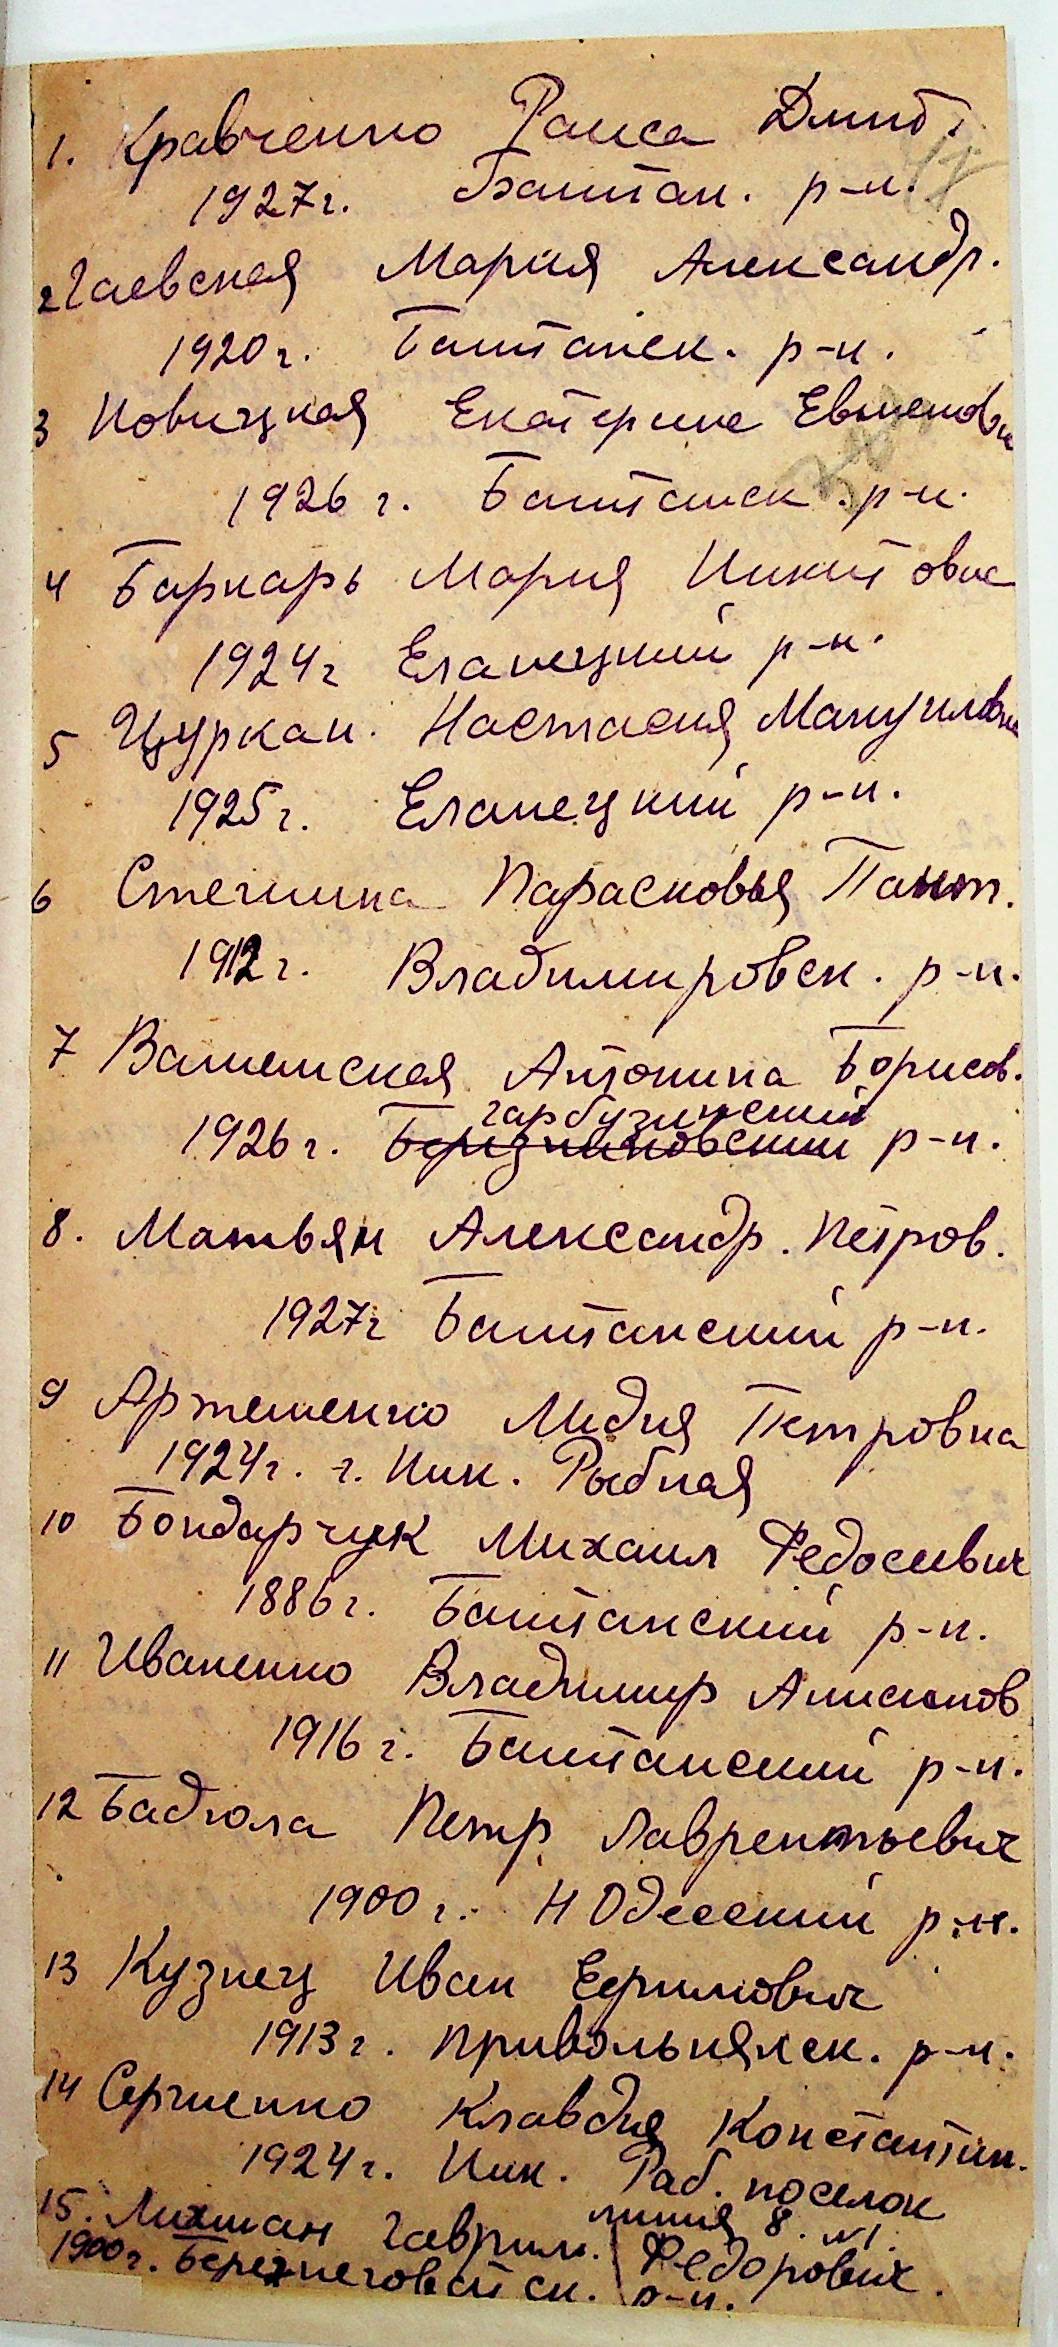 1. Кравченко Раиса Дмит.
1927г. Баштан. р-н.
2 Гаевская Мария Александр.
1920 г. Баштанск. р-н.
3 Новицкая Екатерина Евменовн
1926 г. Баштанск. р-н.
4 Баркарь Мария Никитовна
1924г Еланецкий р-н.
5 Цуркан. Настасия Мануиловна
1925г. Еланецкий р-н.
6 Стегнина Парасковья Пант.
1912 г. Владимировск. р-н.
7 Антонина Борисов.
гарбузинский
1926 г. р-н.
8. Матвян Александр. Петров.
1927г Баштанский р-н.
9 Артеменко Лидия Петровна
1924г. г. Ник. Рыбная
10 Бондарчук Михаил Федосиевич
1886 г. Баштанский р-н.
11 Иваненко Владимир
1916 г. Баштанский р-н.
12 Бадюла Петр Лаврентьевич
1900 г. Н Одесский р-н.
13 Кузнец Иван Ефимович
1913 г. Привольнянск. р-н.
14 Сергиенко Клавдия Константин.
1924 г. Ник. Раб. поселок
линия 8. N1.
15. Лихман Гаврил. Федорович.
1900г. Березнеговатск. р-н.